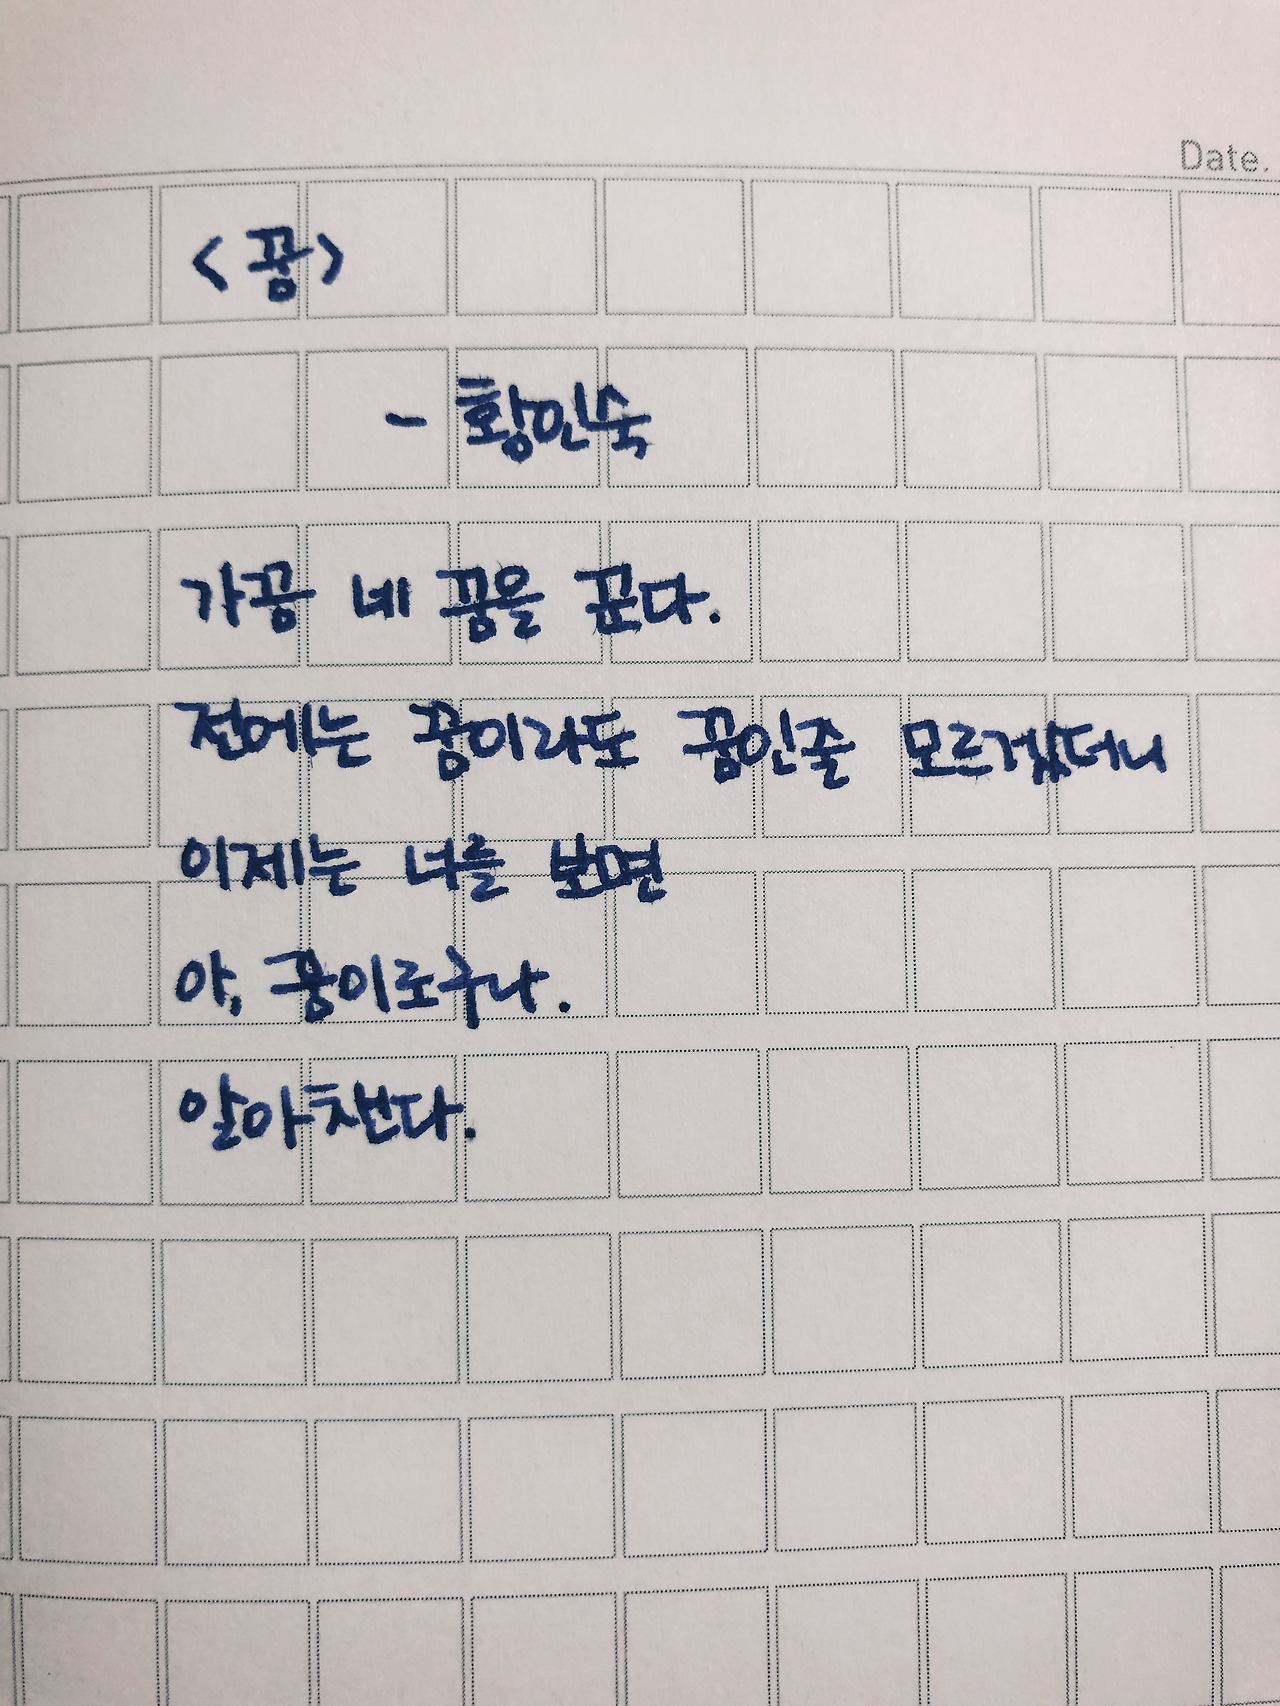 Date.
<꿈>
- 황인숙
가끔 네 꿈을 꾼다.
전에는 꿈이라도 꿈인줄 모르겠더니
이제는 너를 보면
아, 꿈이로구나.
알아챈다.